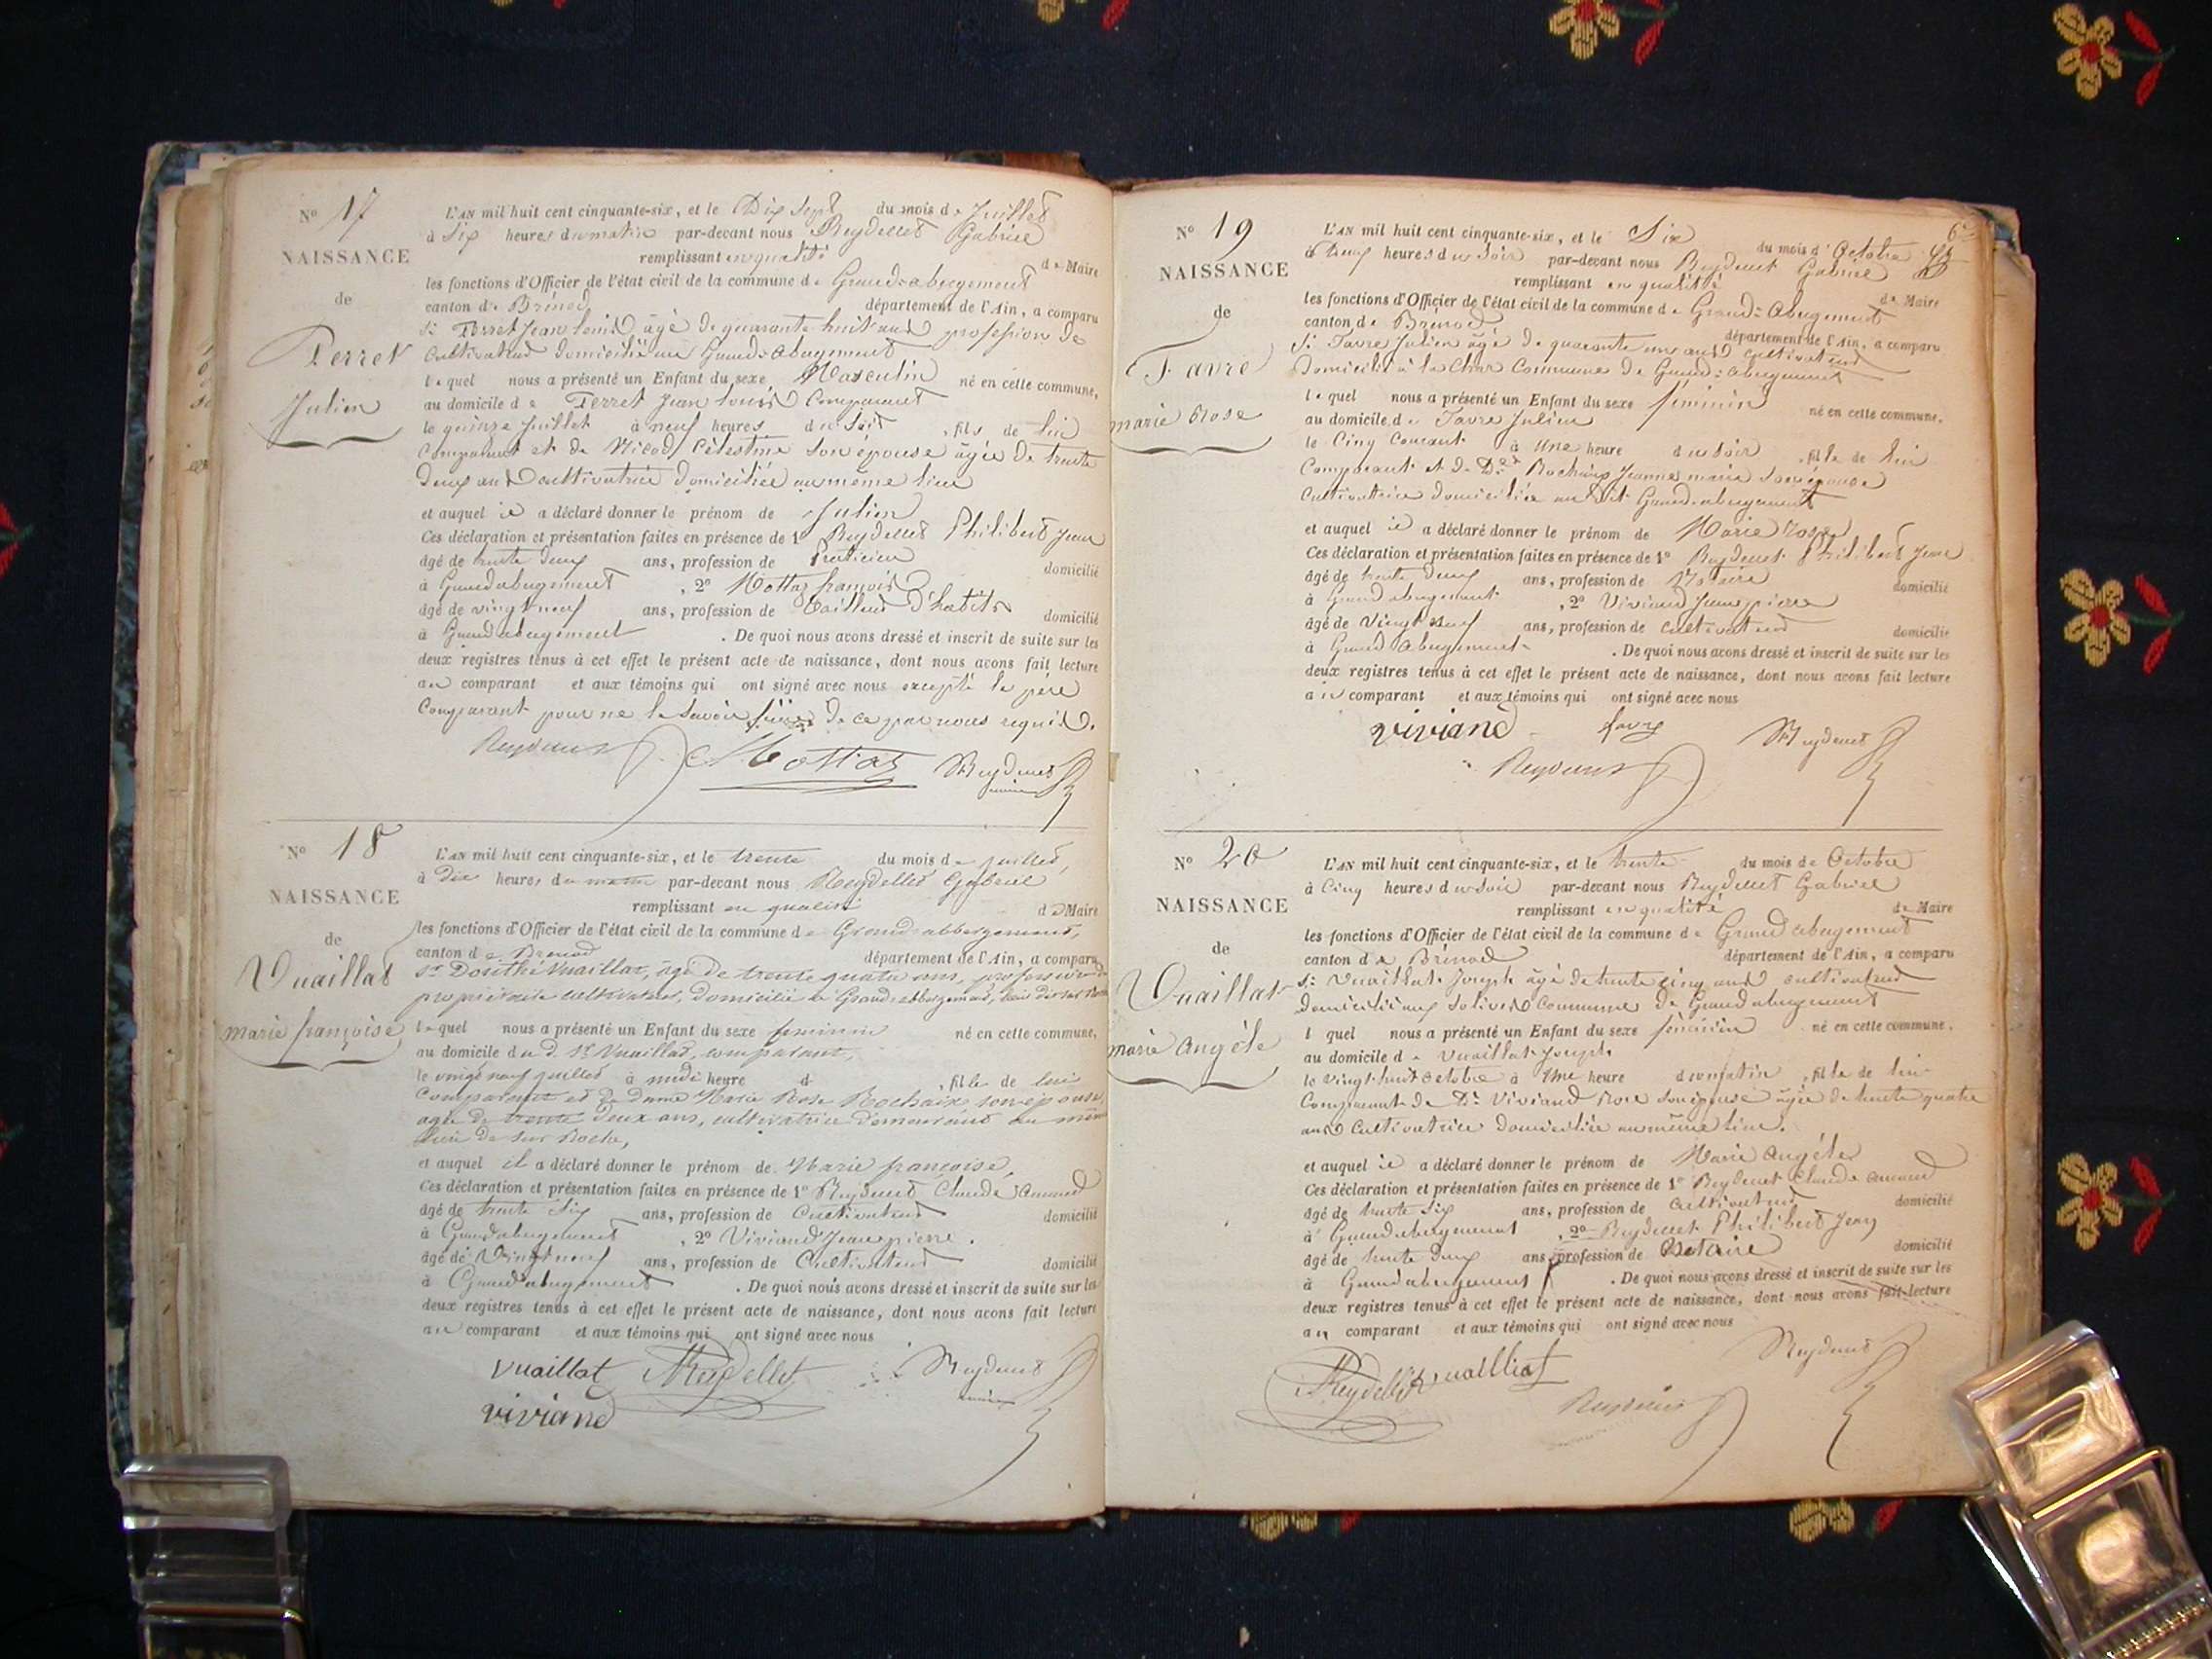 N° 17
NAISSANCE
de
Perret
Julien
L'AN mil huit cent cinquante-six, et le Dix Sept du mois de Juillet
à Six heures du matin par-devant nous Reydellet Gabriel
remplissant en qualité de Maire
les fonctions d'Officier de l'état civil de la commune de Grand-abergement
canton de Brénod département de l'Ain, a comparu
Sr Perret Jean louis âgé de quarante huit ans profession de
Cultivateur domicilié au Grand-abergement
lequel nous a présenté un Enfant du sexe Masculin né en cette commune,
au domicile de Perret Jean louis Comparant
le quinze Juillet à neuf heures du soir, fils de lui
Comparant et de Nicod Célestine son épouse âgée de trente
deux ans Cultivatrice domiciliée au même lieu
et auquel il a déclaré donner le prénom de Julien
Ces déclaration et présentation faites en présence de 1° Reydellet Philibert Jean
âgé de trente deux ans, profession de Praticien domicilié
à Grand abergement, 2° Mottaz françois
âgé de vingt neuf ans, profession de tailleur d'habits domicilié
à Grand abergement. De quoi nous avons dressé et inscrit de suite sur les
deux registres tenus à cet effet le présent acte de naissance, dont nous avons fait lecture
au comparant et aux témoins qui ont signé avec nous excepté le père
Comparant pour ne le savoir faire de ce par nous requis.
Reydellet Mottaz Reydellet
N° 18
NAISSANCE
de
Vuaillat
marie françoise
L'AN mil huit cent cinquante-six, et le trente du mois de juillet,
à dix heures du matin par-devant nous Reydellet Gabriel
remplissant en qualité de Maire
les fonctions d'Officier de l'état civil de la commune de Grand-abbergement,
canton de Brenod département de l'Ain, a comparu
Sr Vuaillat, âgé de trente quatre ans, profession de
propriétaire cultivateur, domicilié à Grand-abbergement,
lequel nous a présenté un Enfant du sexe feminin né en cette commune,
au domicile du d. Sr Vuaillat, comparant,
le vingt neuf juillet à midi heure d , fille de lui
comparant et de dame Marie Rose Rochaix son épouse,
agée de trente deux ans, cultivatrice demeurant au même
lieu de sur Roche,
et auquel il a déclaré donner le prénom de Marie françoise,
Ces déclaration et présentation faites en présence de 1° Reydellet Claude Armand
âgé de trente six ans, profession de Cultivateur domicilié
à Grand abergement, 2° Viviand Jean pierre.
âgé de Vingt neuf ans, profession de Cultivateur domicilié
à Grand abergement. De quoi nous avons dressé et inscrit de suite sur les
deux registres tenus à cet effet le présent acte de naissance, dont nous avons fait lecture
au comparant et aux témoins qui ont signé avec nous
vuaillat Reydellet Reydellet
viviand
N° 19
NAISSANCE
de
Favre
marie Rose
L'AN mil huit cent cinquante-six, et le Six du mois d'Octobre
à heures du soir par-devant nous Reydellet Gabriel
remplissant en qualité de Maire
les fonctions d'Officier de l'état civil de la commune de Grand-Abergement
canton de Brénod département de l'Ain, a comparu
Sr Favre Julien âgé de quarante un ans cultivateur
domicilié à la Commune de Grand-abergement
lequel nous a présenté un Enfant du sexe féminin né en cette commune.
au domicile de Favre Julien
le Cinq Courant à Une heure du soir, fille de lui
Comparant et de De Rochaix Jeanne marie son épouse
Cultivatrice domiciliée au dit Grand-abergement
et auquel il a déclaré donner le prénom de Marie Rose
Ces déclaration et présentation faites en présence de 1° Reydellet Philibert Jean
âgé de trente deux ans, profession de Notaire domicilié
à Grand abergement, 2° Viviand Jean pierre
âgé de Vingt neuf ans, profession de cultivateur domicilié
à Grand Abergement. De quoi nous avons dressé et inscrit de suite sur les
deux registres tenus à cet effet le présent acte de naissance, dont nous avons fait lecture
au comparant et aux témoins qui ont signé avec nous
viviand favre Reydellet
Reydellet
N° 20
NAISSANCE
de
Vuaillat
marie Angéle
L'AN mil huit cent cinquante-six, et le trente du mois de Octobre
à Cinq heures du soir par-devant nous Reydellet Gabriel
remplissant en qualité de Maire
les fonctions d'Officier de l'état civil de la commune de Grand abergement
canton de Brénod département de l'Ain, a comparu
Sr Vuaillat Joseph âgé de trente cinq ans cultivateur
domicilié aux Commune de Grand abergement
l quel nous a présenté un Enfant du sexe féminin né en cette commune.
au domicile de Vuaillat Joseph
le Vingt huit octobre à Une heure du matin, fille de lui
Comparant de De Viviand Rose son épouse âgée de trente quatre
ans Cultivatrice domiciliée au même lieu.
et auquel il a déclaré donner le prénom de Marie Angéle
Ces déclaration et présentation faites en présence de 1° Reydellet Claude Armand
âgé de trente six ans, profession de Cultivateur domicilié
à Grand abergement, 2° Reydellet Philibert Jean
âgé de trente deux ans, profession de Notaire domicilié
à Grand abergement. De quoi nous avons dressé et inscrit de suite sur les
deux registres tenus à cet effet le présent acte de naissance, dont nous avons fait lecture
au comparant et aux témoins qui ont signé avec nous
Reydellet vuailliat Reydellet
Reydellet